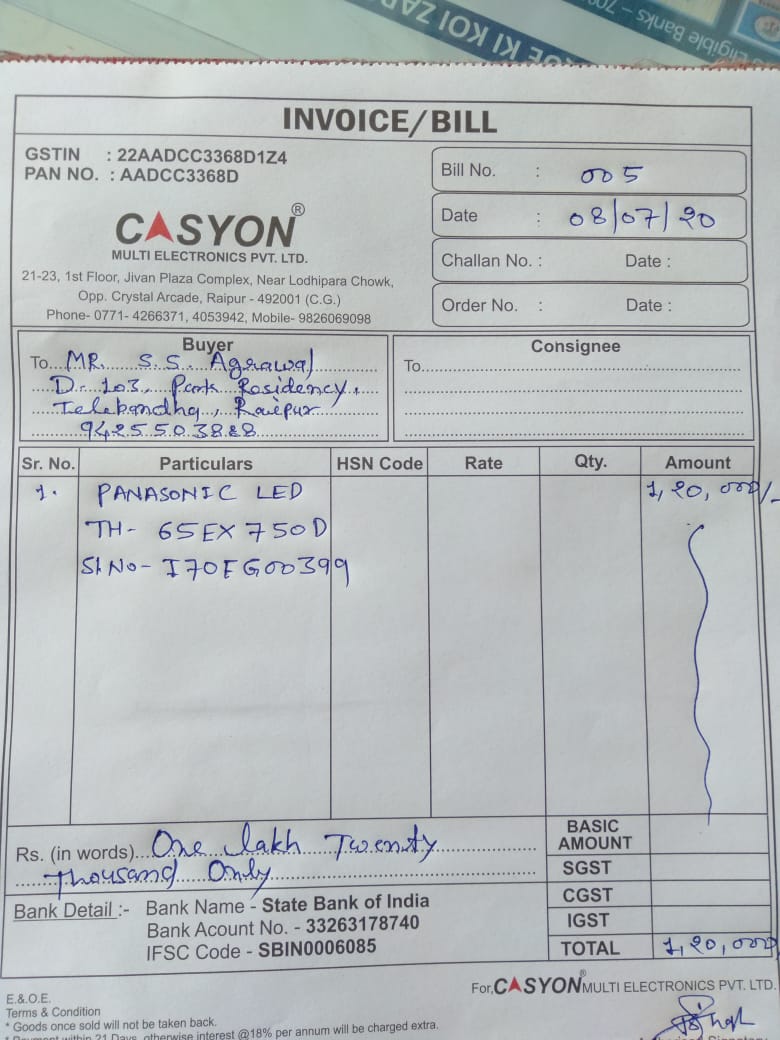 OE KI KOI ZAR
Eligible Banks – 70
INVOICE/BILL
GSTIN : 22AADCC3368D1Z4
PAN NO. : AADCC3368D
CASYON®
MULTI ELECTRONICS PVT. LTD.
21-23, 1st Floor, Jivan Plaza Complex, Near Lodhipara Chowk,
Opp. Crystal Arcade, Raipur - 492001 (C.G.)
Phone- 0771- 4266371, 4053942, Mobile- 9826069098
Bill No. : 005
Date : 08/07/20
Challan No. : Date :
Order No. : Date :
Buyer
To... MR. S.S. Agrawal
D-103, Park Residency,
Telebandha, Raipur
9425503888
Consignee
To
Sr. No. Particulars HSN Code Rate Qty. Amount
1. PANASONIC LED 1,20,000/-
TH- 65EX750D
Sl.No- I70EG00399
Rs. (in words)... One lakh Twenty
Thousand Only
BASIC AMOUNT
SGST
CGST
IGST
TOTAL 1,20,000
Bank Detail :- Bank Name - State Bank of India
Bank Acount No. - 33263178740
IFSC Code - SBIN0006085
For, CASYON® MULTI ELECTRONICS PVT. LTD.
E.&.O.E.
Terms & Condition
* Goods once sold will not be taken back.
* Payment within 21 Days, otherwise interest @18% per annum will be charged extra.